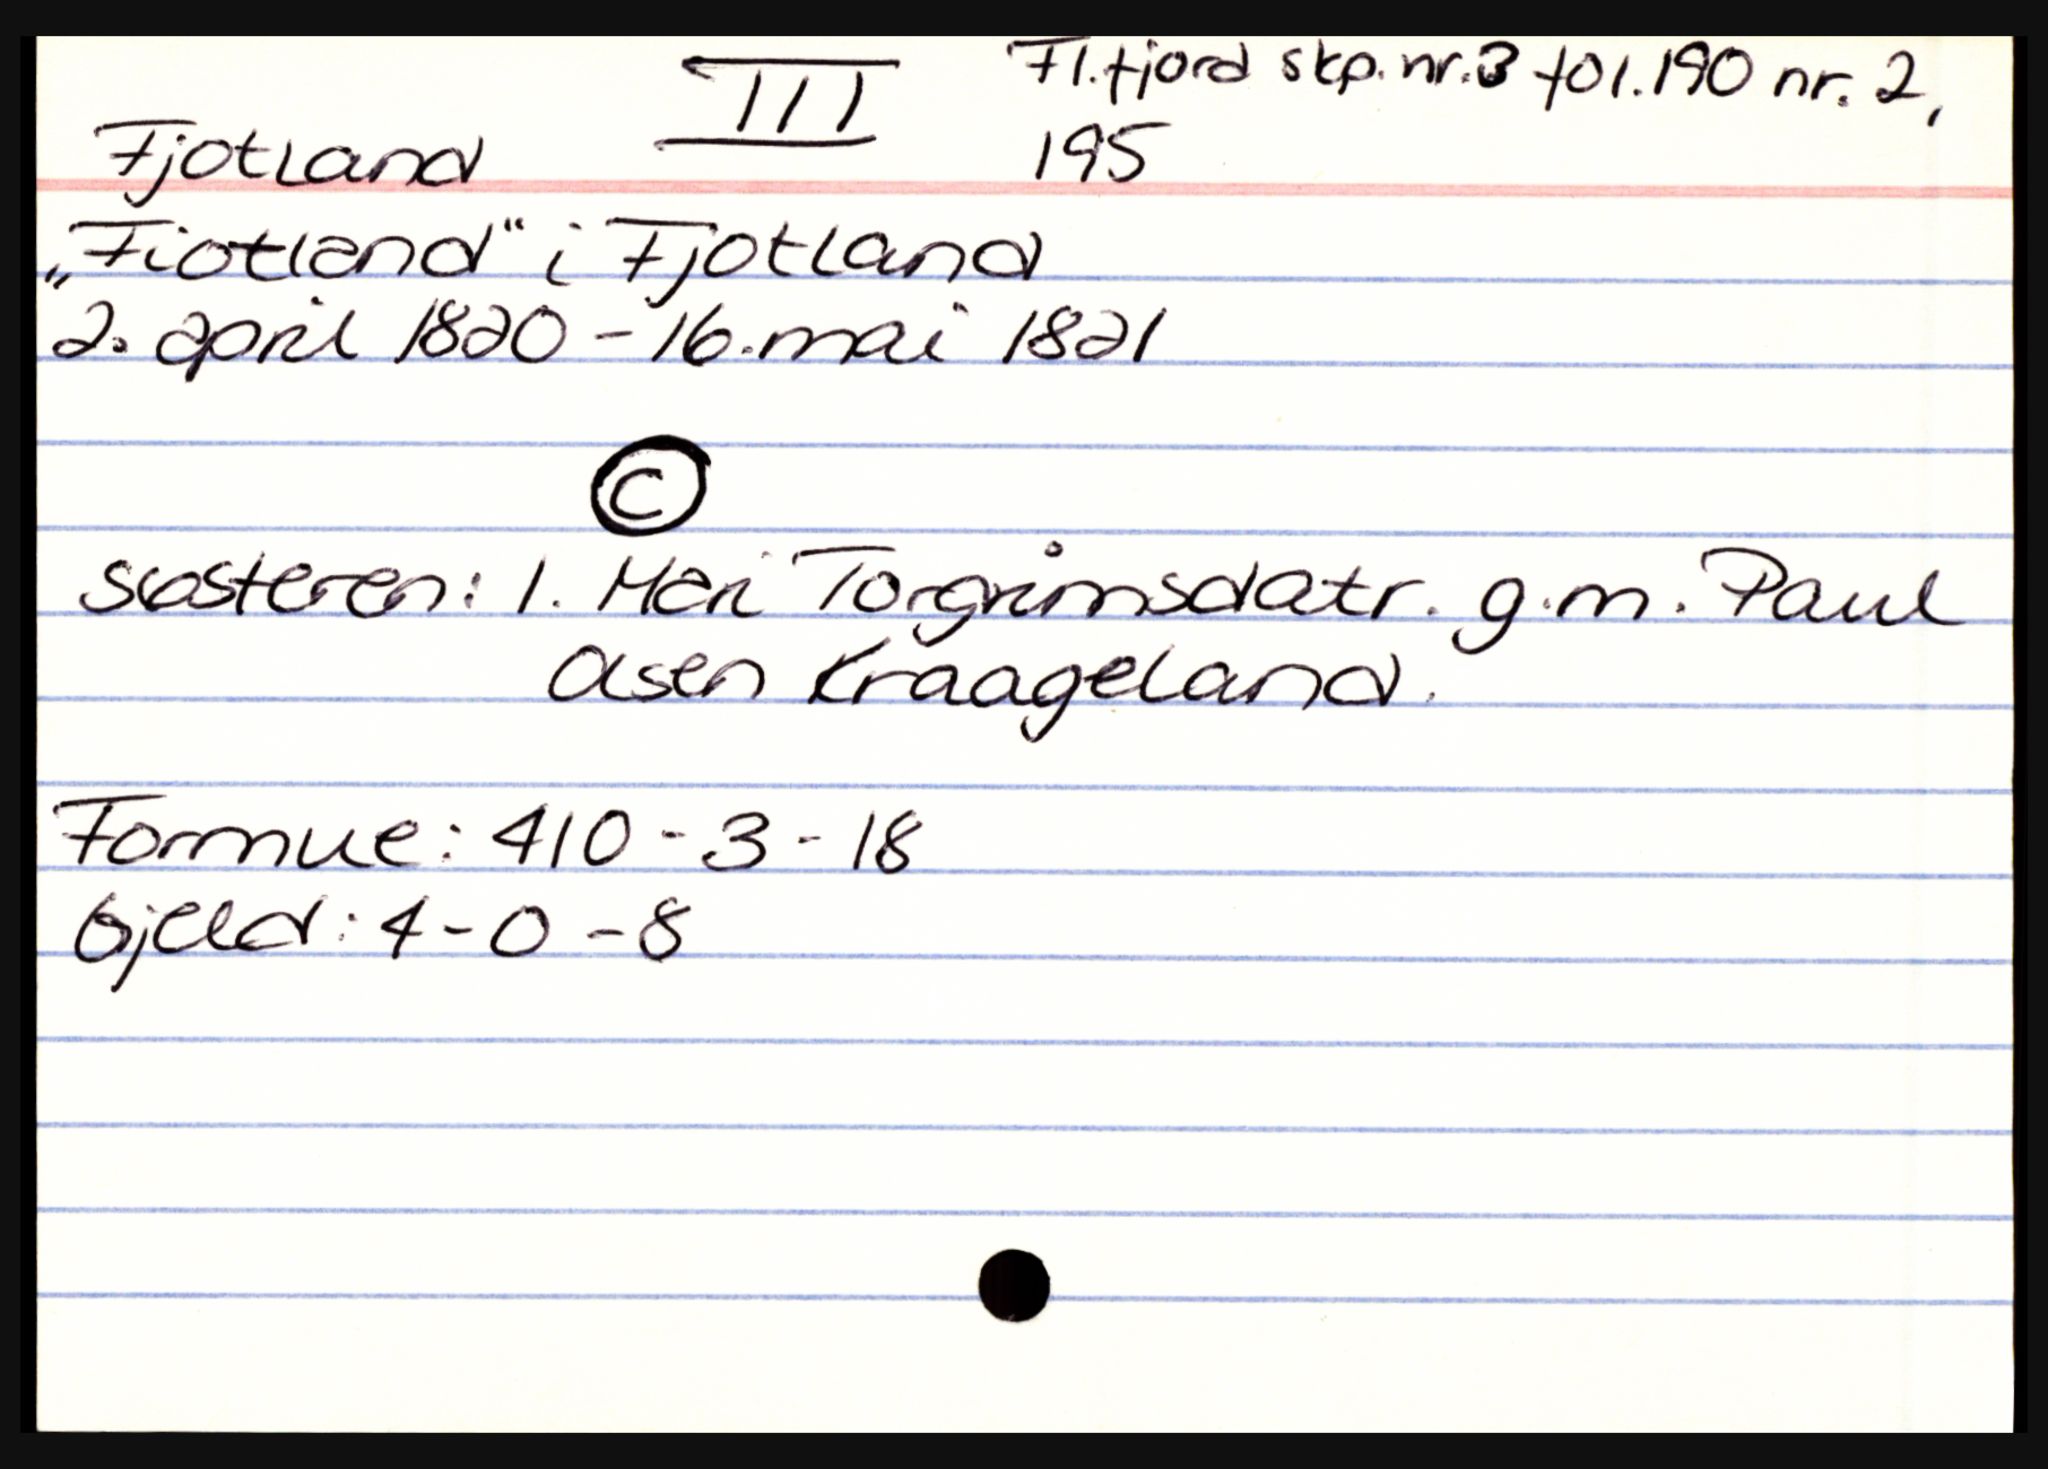 Fl.fjord skp.nr.3 fol.190 nr. 2,
III
195
Fjotland
„Fiotland“ i Fjotland
2. april 1820 - 16. mai 1821
C
søsteren: 1. Mari Torgrimsdatr. g.m. Paul
Olsen Kraageland.
Formue: 410 - 3 - 18
Gjeld: 4 - 0 - 8